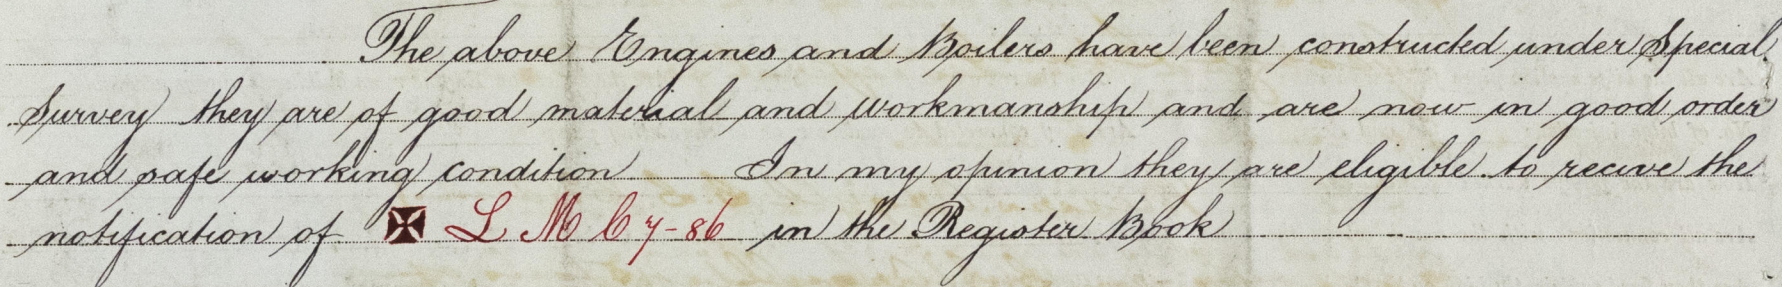 The above Engines and Boilers have been constructed under Special
Survey they are of good material and workmanship and are now in good order
and safe working condition In my opinion they are eligible to recive the
notification of ✠ L M C 7-86 in the Register Book